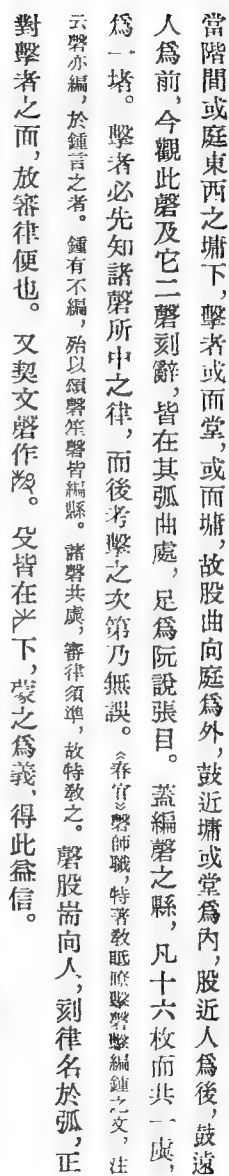 當階間或庭東西之墉下,擊者或面堂,或面墉,故股曲向庭爲外,鼓近墉或堂爲內,股近人爲後,鼓遠
人爲前,今觀此磬及它二磬刻辭,皆在其弧曲處,足爲阮說張目。蓋編磬之縣,凡十六枚而共一虡,
爲一堵。擊者必先知諸磬所中之律,而後考擊之次第乃無誤。《春官》磬師職,特著敎眂瞭擊磬擊編鍾之文,注
云磬亦編,於鍾言之者。鍾有不編,殆以頌磬笙磬皆編縣。諸磬共虡,審律須準,故特敎之。磬股耑向人,刻律名於弧,正
對擊者之面,放審律便也。又契文磬作。殳皆在下,蒙之爲義,得此益信。